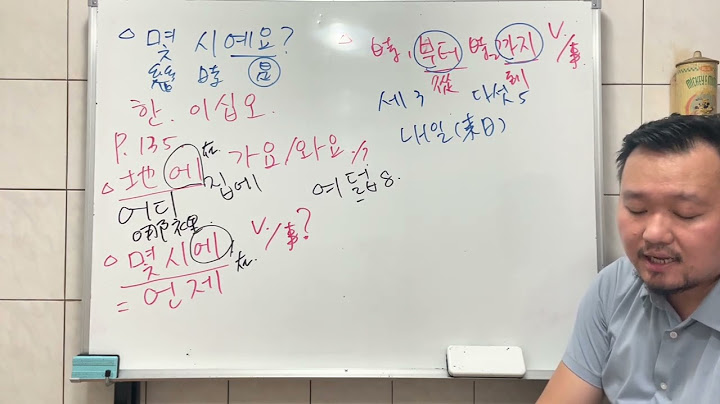 몇 시예요?
幾 時 是
한. 이십오.
P.135
地에 在 가요/와요?
어디 집에
哪裡
몇 시에 在 V./事?
= 언제
여덟 8.
時1 부터 時2 까지 V./事.
從 到
세 3 다섯 5
내일(來日)
MICKEY